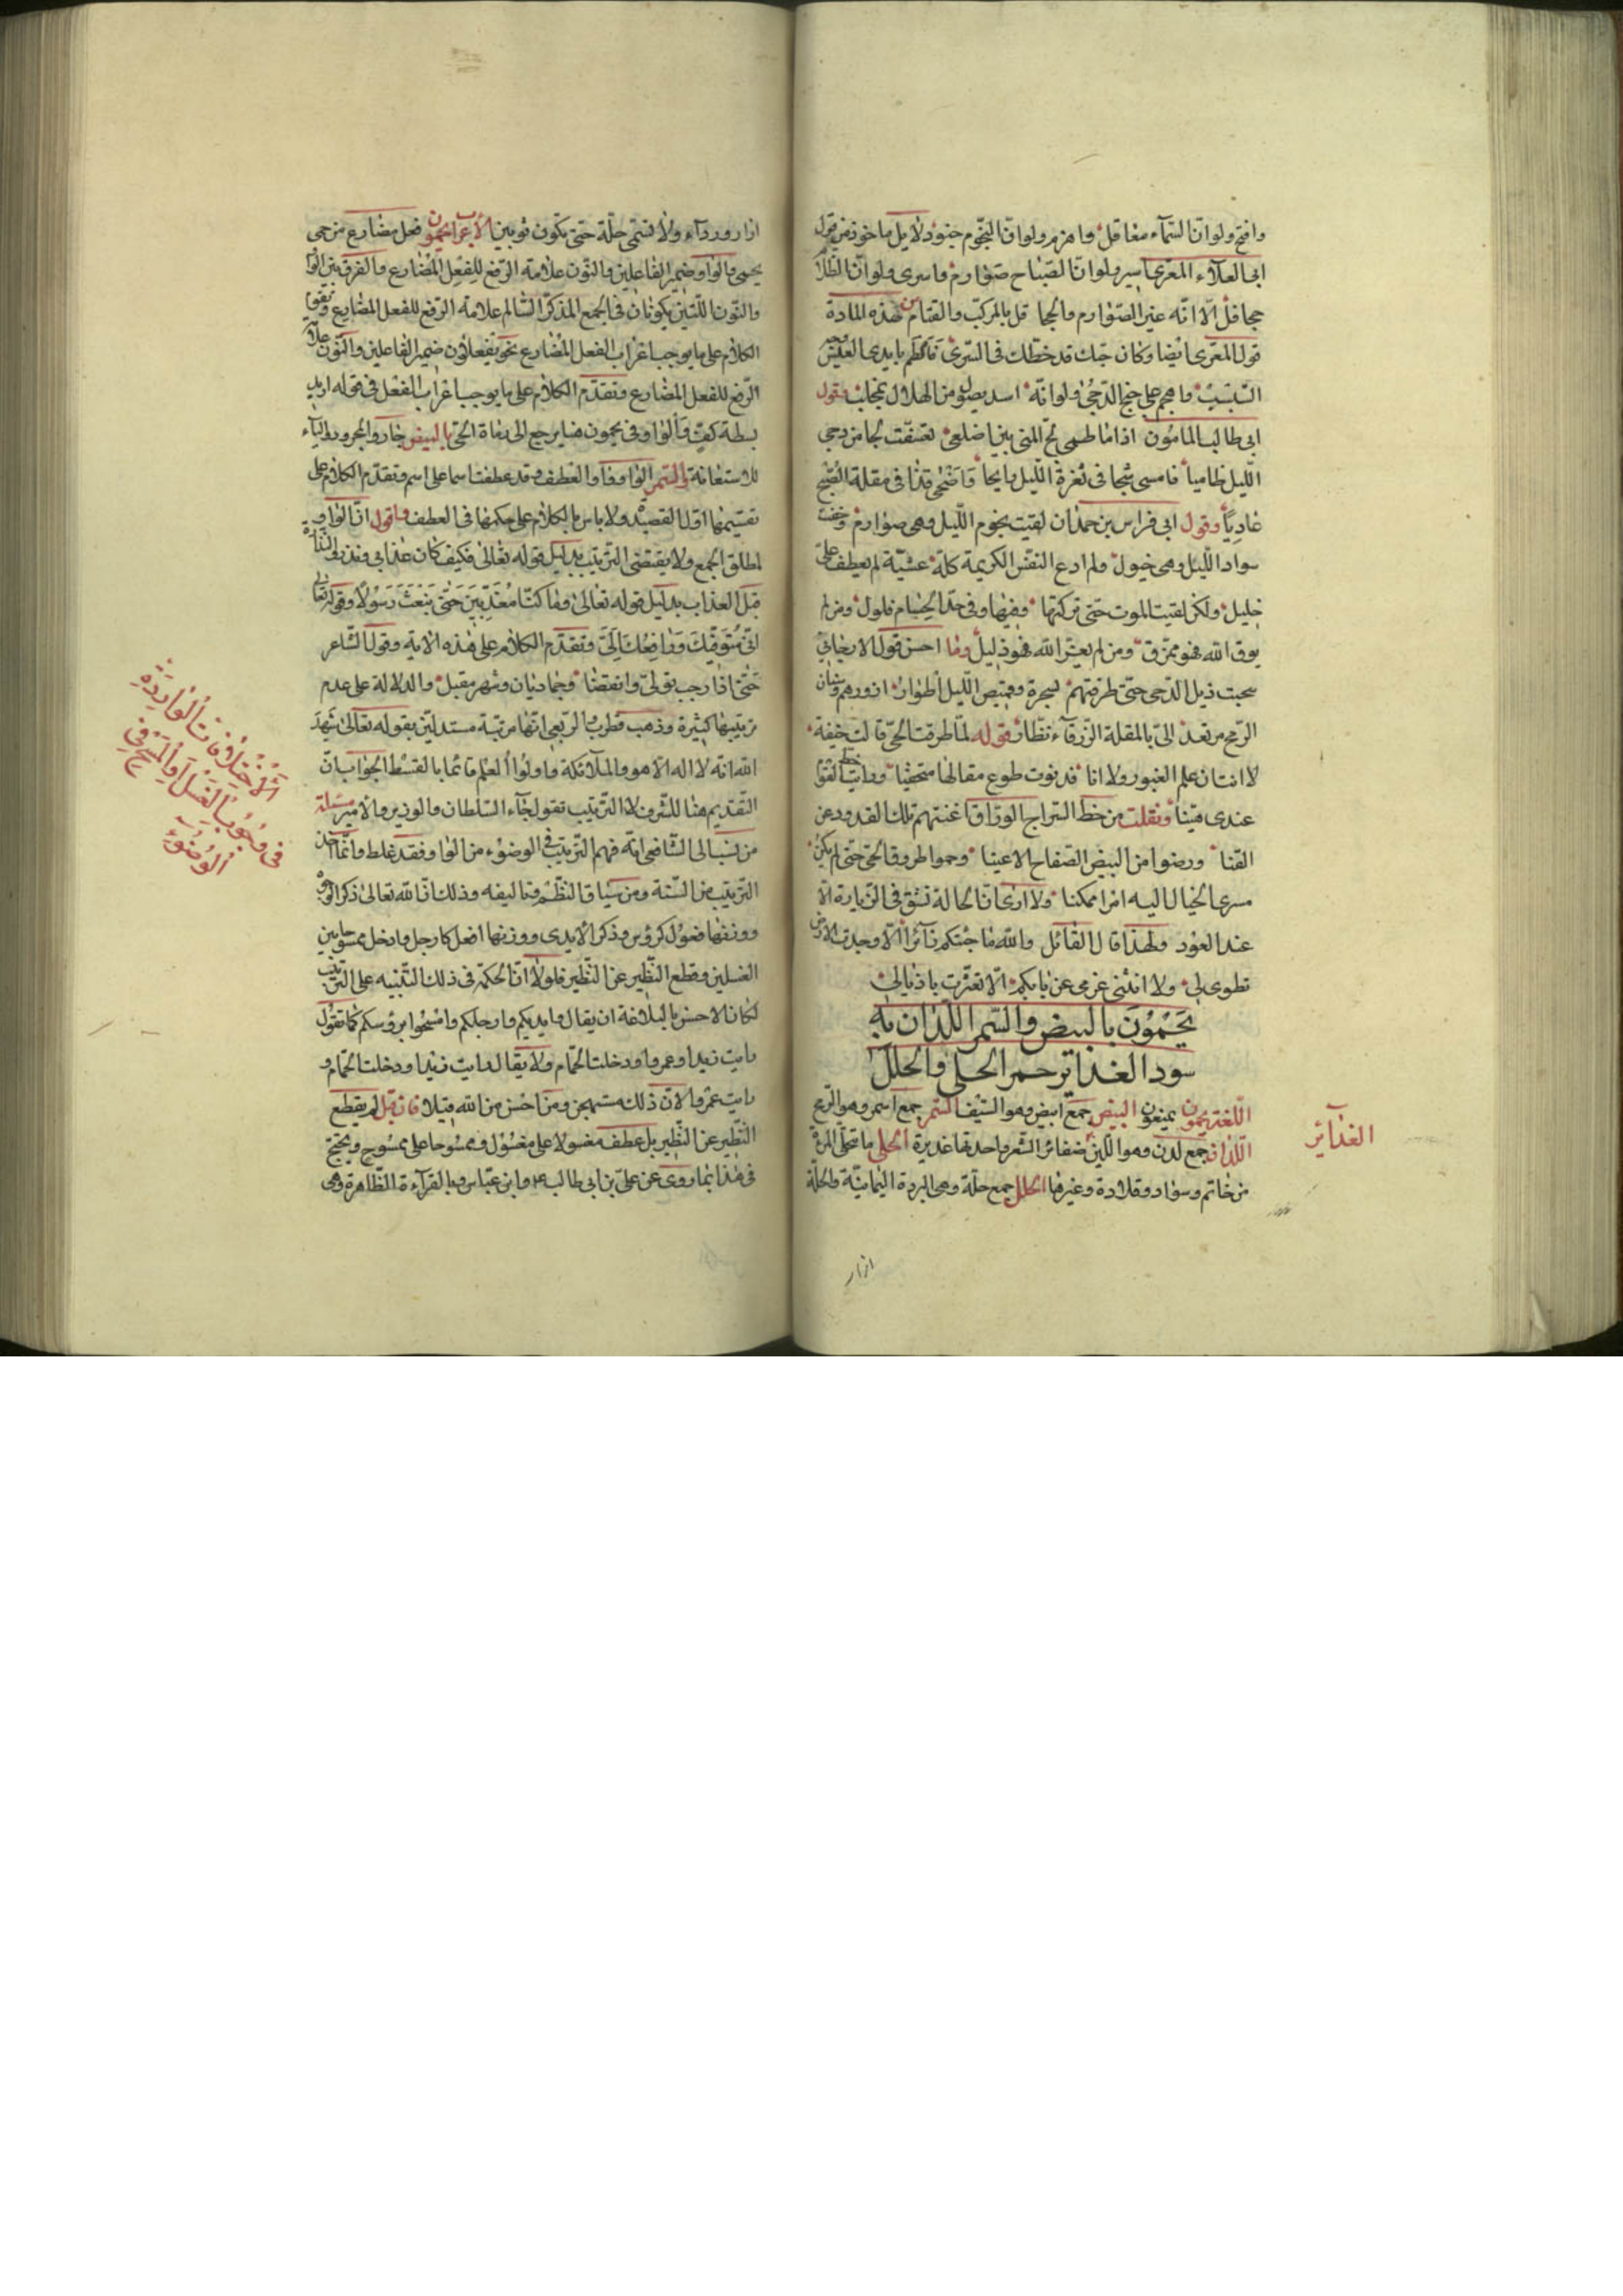 وافتح ولو ان السماء معاقل واهزم ولو ان النجوم جنود لا بل ماخوذ من قول
ابي العلاء المعري اسير ولو ان الصباح صوارم واسري ولو ان الظلام
جحافل الا انه غير الصوارم والجحافل بالمركب والقتام ومن هذه المادة
قول المعري ايضا وكان حبك قد خطك في السرى فالطم بايدي العيس وجه
السبسب واهجم على جنح الدجى ولو انه اسد يصول من الهلال بمخلب وقول
ابي طالب المامون اذا ما طمى لج المنى بين اضلعي تعسفت لجا من دجى
الليل ظاميا فامسى شجا في ثغرة الليل والجا واضحى قذا في مقلة الصبح
غاديا وقول ابي فراس بن حمدان لقيت نجوم الليل وهي صوارم وخضت
سواد الليل وهي خيول ولم ادع النفس الكريمة كلة عشية لم يعطف علي
خليل ولكن لقيت الموت حتى تركتها وفيها وفي حد الحسام فلول ومن لم
يوق الله فهو ممزق ومن لم يعز الله فهو ذليل وما احسن قول الارجاني
سحبت ذيل الدجى حتى طرقتهم بسحرة وقميص الليل اطوار ازورهم وسنان
الرمح من بعد الي بالمقلة الزرقاء نظار قوله لما طرقت الحي قالت خيفة
لا انت ان علم الغيور ولا انا فدنوت طوع مقالها متخفيا ورايت خطب القوم
عندي هينا ونقلت من خط السراج الوراق اغنتهم تلك القدود عن
القنا ورضوا من البيض الصفاح الاعينا وحموا طروق الحي حتى لم يكن
مسرى الخيال اليه امرا ممكنا ولا ارى ان الحالة تشق في الزيارة الا
عند العود ولهذا قال القائل والله ما جئتكم زائرا الا وجدت الارض
تطوى لي ولا انثنى عزمي عن بابكم الا تعثرت باذيالي
يحمون بالبيض والسمر اللدان به
سود الغدائر حمر الحلي والحلل
اللغة يحمون يمنعون البيض جمع ابيض وهو السيف السمر جمع اسمر وهو الرمح
اللدان جمع لدن وهو اللين ضفائر الشعر واحدتها غديرة الحلي ما تتحلى المرأة
من خاتم وسوار وقلادة وغيرها الحلل جمع حلة وهي البردة اليمانية والحلة
ازار
الغدآئر
ازار ورداء ولا تسمى حلة حتى تكون ثوبين الاعراب يحمون فعل مضارع من حمى
يحمي والواو ضمير الفاعلين والنون علامة الرفع للفعل المضارع والفرق بين الواو
والنون اللتين يكونان في الجمع المذكر السالم علامة الرفع للفعل المضارع
الكلام على ما يوجب اعراب الفعل المضارع نحو يفعلون ضمير الفاعلين والنون علامة
الرفع للفعل المضارع وتقدم الكلام على ما يوجب اعراب الفعل في قوله اريد
بسطة كف والواو في يحمون هنا يرجع الى رماة الحي بالبيض جار والمجرور والباء
للاستعانة والسمر الواو واو العطف وقد عطفت اسما على اسم وتقدم الكلام على
تقسيمها اول القصيد ولا باس بالكلام على حكمها في العطف واقول ان الواو
لمطلق الجمع ولا يقتضي الترتيب بدليل قوله تعالى فكيف كان عذابي ونذر والنذارة
قبل العذاب بدليل قوله تعالى وما كنا معذبين حتى نبعث رسولا وقوله تعالى
اني متوفيك ورافعك الي وتقدم الكلام على هذه الاية وقول الشاعر
حتى اذا رجب تولى وانقضا وجماديان وشهر مقبل والدلالة على عدم
ترتيبها كثيرة وذهب قطرب والربعي انها مرتبة مستدلين بقوله تعالى شهد
الله انه لا اله الا هو والملائكة واولوا العلم قائما بالقسط الجواب ان
التقديم هنا للشرف لا الترتيب تقول جاء السلطان والوزير والامير مسئلة
من نسب الى الشافعي انه فهم الترتيب في الوضوء من الواو فقد غلط وانما اخذ
الترتيب من السنة ومن سياق النظم وتاليفه وذلك ان الله تعالى ذكر الوجوه
ووزنها فعول كرؤس وذكر الايدي ووزنها افعل كارجل وادخل ممسوحا بين
الغسلين وقطع النظير عن النظير فلولا ان الحكمة في ذلك التنبيه على الترتيب
لكان الاحسن بالبلاغة ان يقال وايديكم وارجلكم وامسحوا برؤسكم كما تقول
رايت زيدا وعمروا ودخلت الحمام ولا يقال رايت زيدا ودخلت الحمام و
رايت عمروا لان ذلك مستهجن ومن احسن من الله قيلا فان قيل لم يقطع
النظير عن النظير بل عطف مغسولا على مغسول وممسوحا على ممسوح ويحتج
في هذا بما روى عن علي بن ابي طالب ع وابن عباس وبالقراءة الظاهرة وهي
الاختلافات الواردة
في وجوب الغسل او المسح في
الوضوء